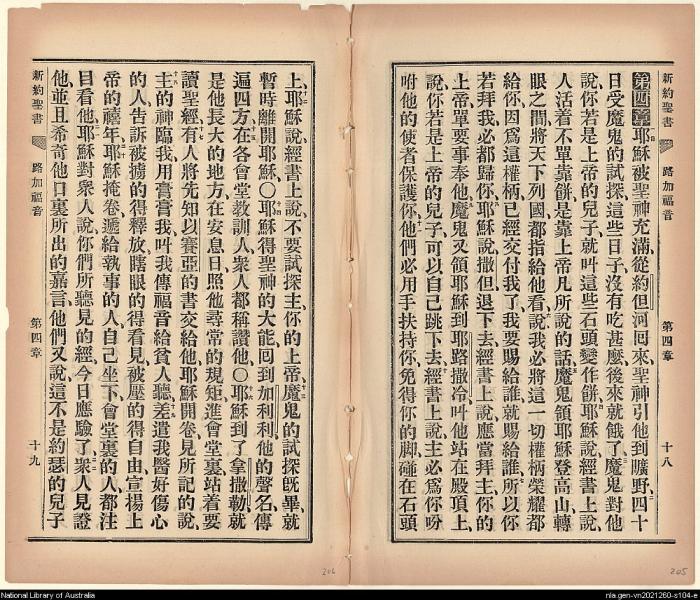 新約聖書
路加福音
第四章
十八
第四章耶穌被聖神充滿從約但河回來聖神引他到曠野四十
日受魔鬼的試探這些日子沒有吃甚麼後來就餓了魔鬼對他
說你若是上帝的兒子就叫這些石頭變作餅耶穌說經書上說
人活着不單靠餅是靠上帝凡所說的話魔鬼領耶穌登高山轉
眼之間將天下列國都指給他看說我必將這一切權柄榮耀都
給你因為這權柄已經交付我了我要賜給誰就賜給誰所以你
若拜我必都歸你耶穌說撒但退下去經書上說應當拜主你的
上帝單要事奉他魔鬼又領耶穌到耶路撒冷叫他站在殿頂上
說你若是上帝的兒子可以自己跳下去經書上說主必為你吩
咐他的使者保護你他們必用手扶持你免得你的脚碰在石頭
上耶穌說經書上說不要試探主你的上帝魔鬼的試探旣畢就
暫時離開耶穌○耶穌得聖神的大能回到加利利他的聲名傳
遍四方在各會堂教訓人衆人都稱讚他○耶穌到了拿撒勒就
是他長大的地方在安息日照他尋常的規矩進會堂裏站着要
讀聖經有人將先知以賽亞的書交給他耶穌開卷見所記的說
主的神臨我用膏膏我叫我傳福音給貧人聽差遣我醫好傷心
的人告訴被擄的得釋放瞎眼的得看見被壓的得自由宣揚上
帝的禧年耶穌掩卷遞給執事的人自己坐下會堂裏的人都注
目看他耶穌對衆人說你們所聽見的經今日應驗了衆人見證
他並且希奇他口裏所出的嘉言他們又說這不是約瑟的兒子
新約聖書
路加福音
第四章
十九
206
205
National Library of Australia
nla.gen-vn2021260-s104-e